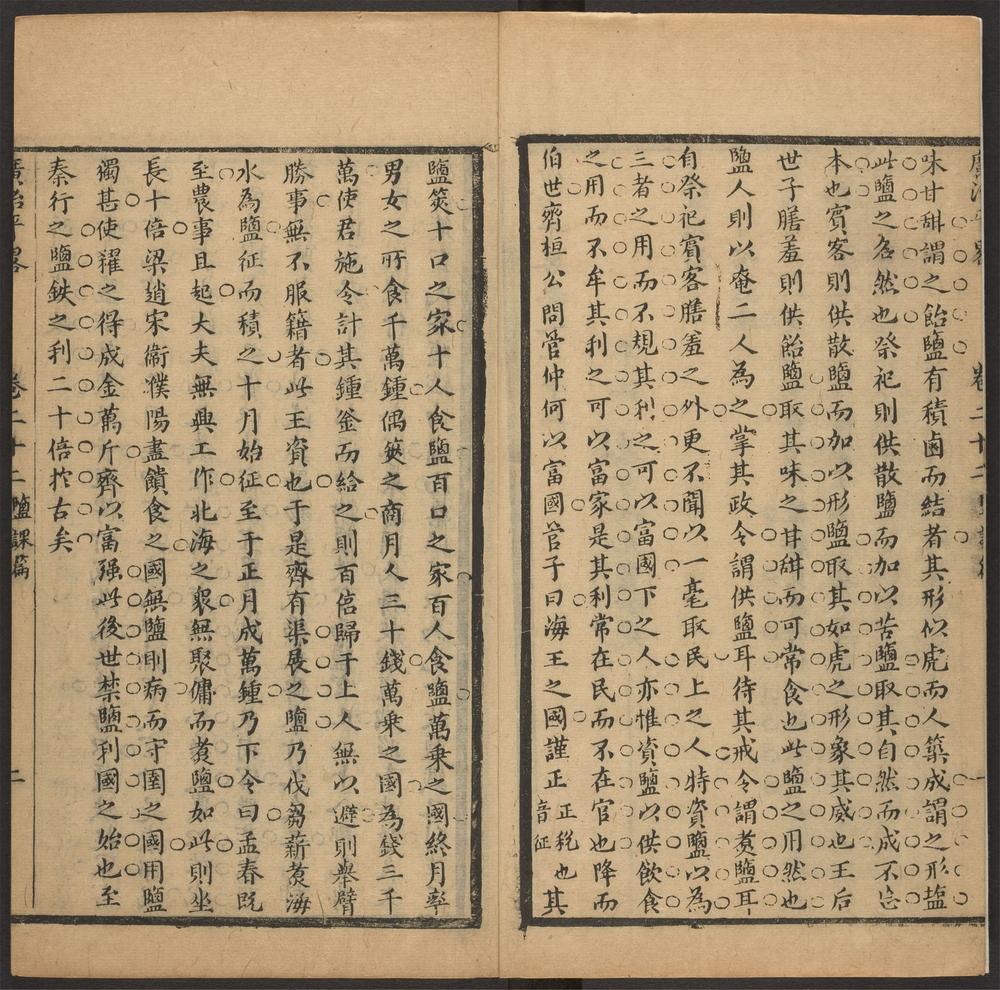 味甘甜謂之飴鹽有積鹵而結者其形似虎而人築成謂之形塩
此鹽之名然也祭祀則供散鹽而加以苦鹽取其自然而成不忘
本也賓客則供散鹽而加以形鹽取其如虎之形象其威也王后
世子膳羞則供飴鹽取其味之甘甜而可常食也此鹽之用然也
鹽人則以奄二人為之掌其政令謂供鹽耳待其戒令謂煑鹽耳
自祭祀賓客膳羞之外更不聞以一毫取民上之人特資鹽以為
三者之用而不規其利之可以富國下之人亦惟資鹽以供飲食
之用而不牟其利之可以富家是其利常在民而不在官也降而
伯世齊桓公問管仲何以富國管子曰海王之國謹正正稅也音征其
鹽筴十口之家十人食鹽百口之家百人食鹽萬乘之國終月率
男女之所食千萬鍾偶筴之商月人三十錢萬乘之國為錢三千
萬使君施令計其鍾釜而給之則百倍歸于上人無以避則舉臂
勝事無不服籍者此王資也于是齊有渠展之鹽乃伐芻薪煑海
水為鹽征而積之十月始征至于正月成萬鍾乃下令曰孟春旣
至農事且起大夫無興工作北海之衆無聚傭而煑鹽如此則坐
長十倍梁趙宋衛濮陽盡饋食之國無鹽則病而守圉之國用鹽
獨甚使糴之得成金萬斤齊以富强此後世禁鹽利國之始也至
秦行之鹽鉄之利二十倍於古矣
廣治平畧 卷二十二鹽課篇 二